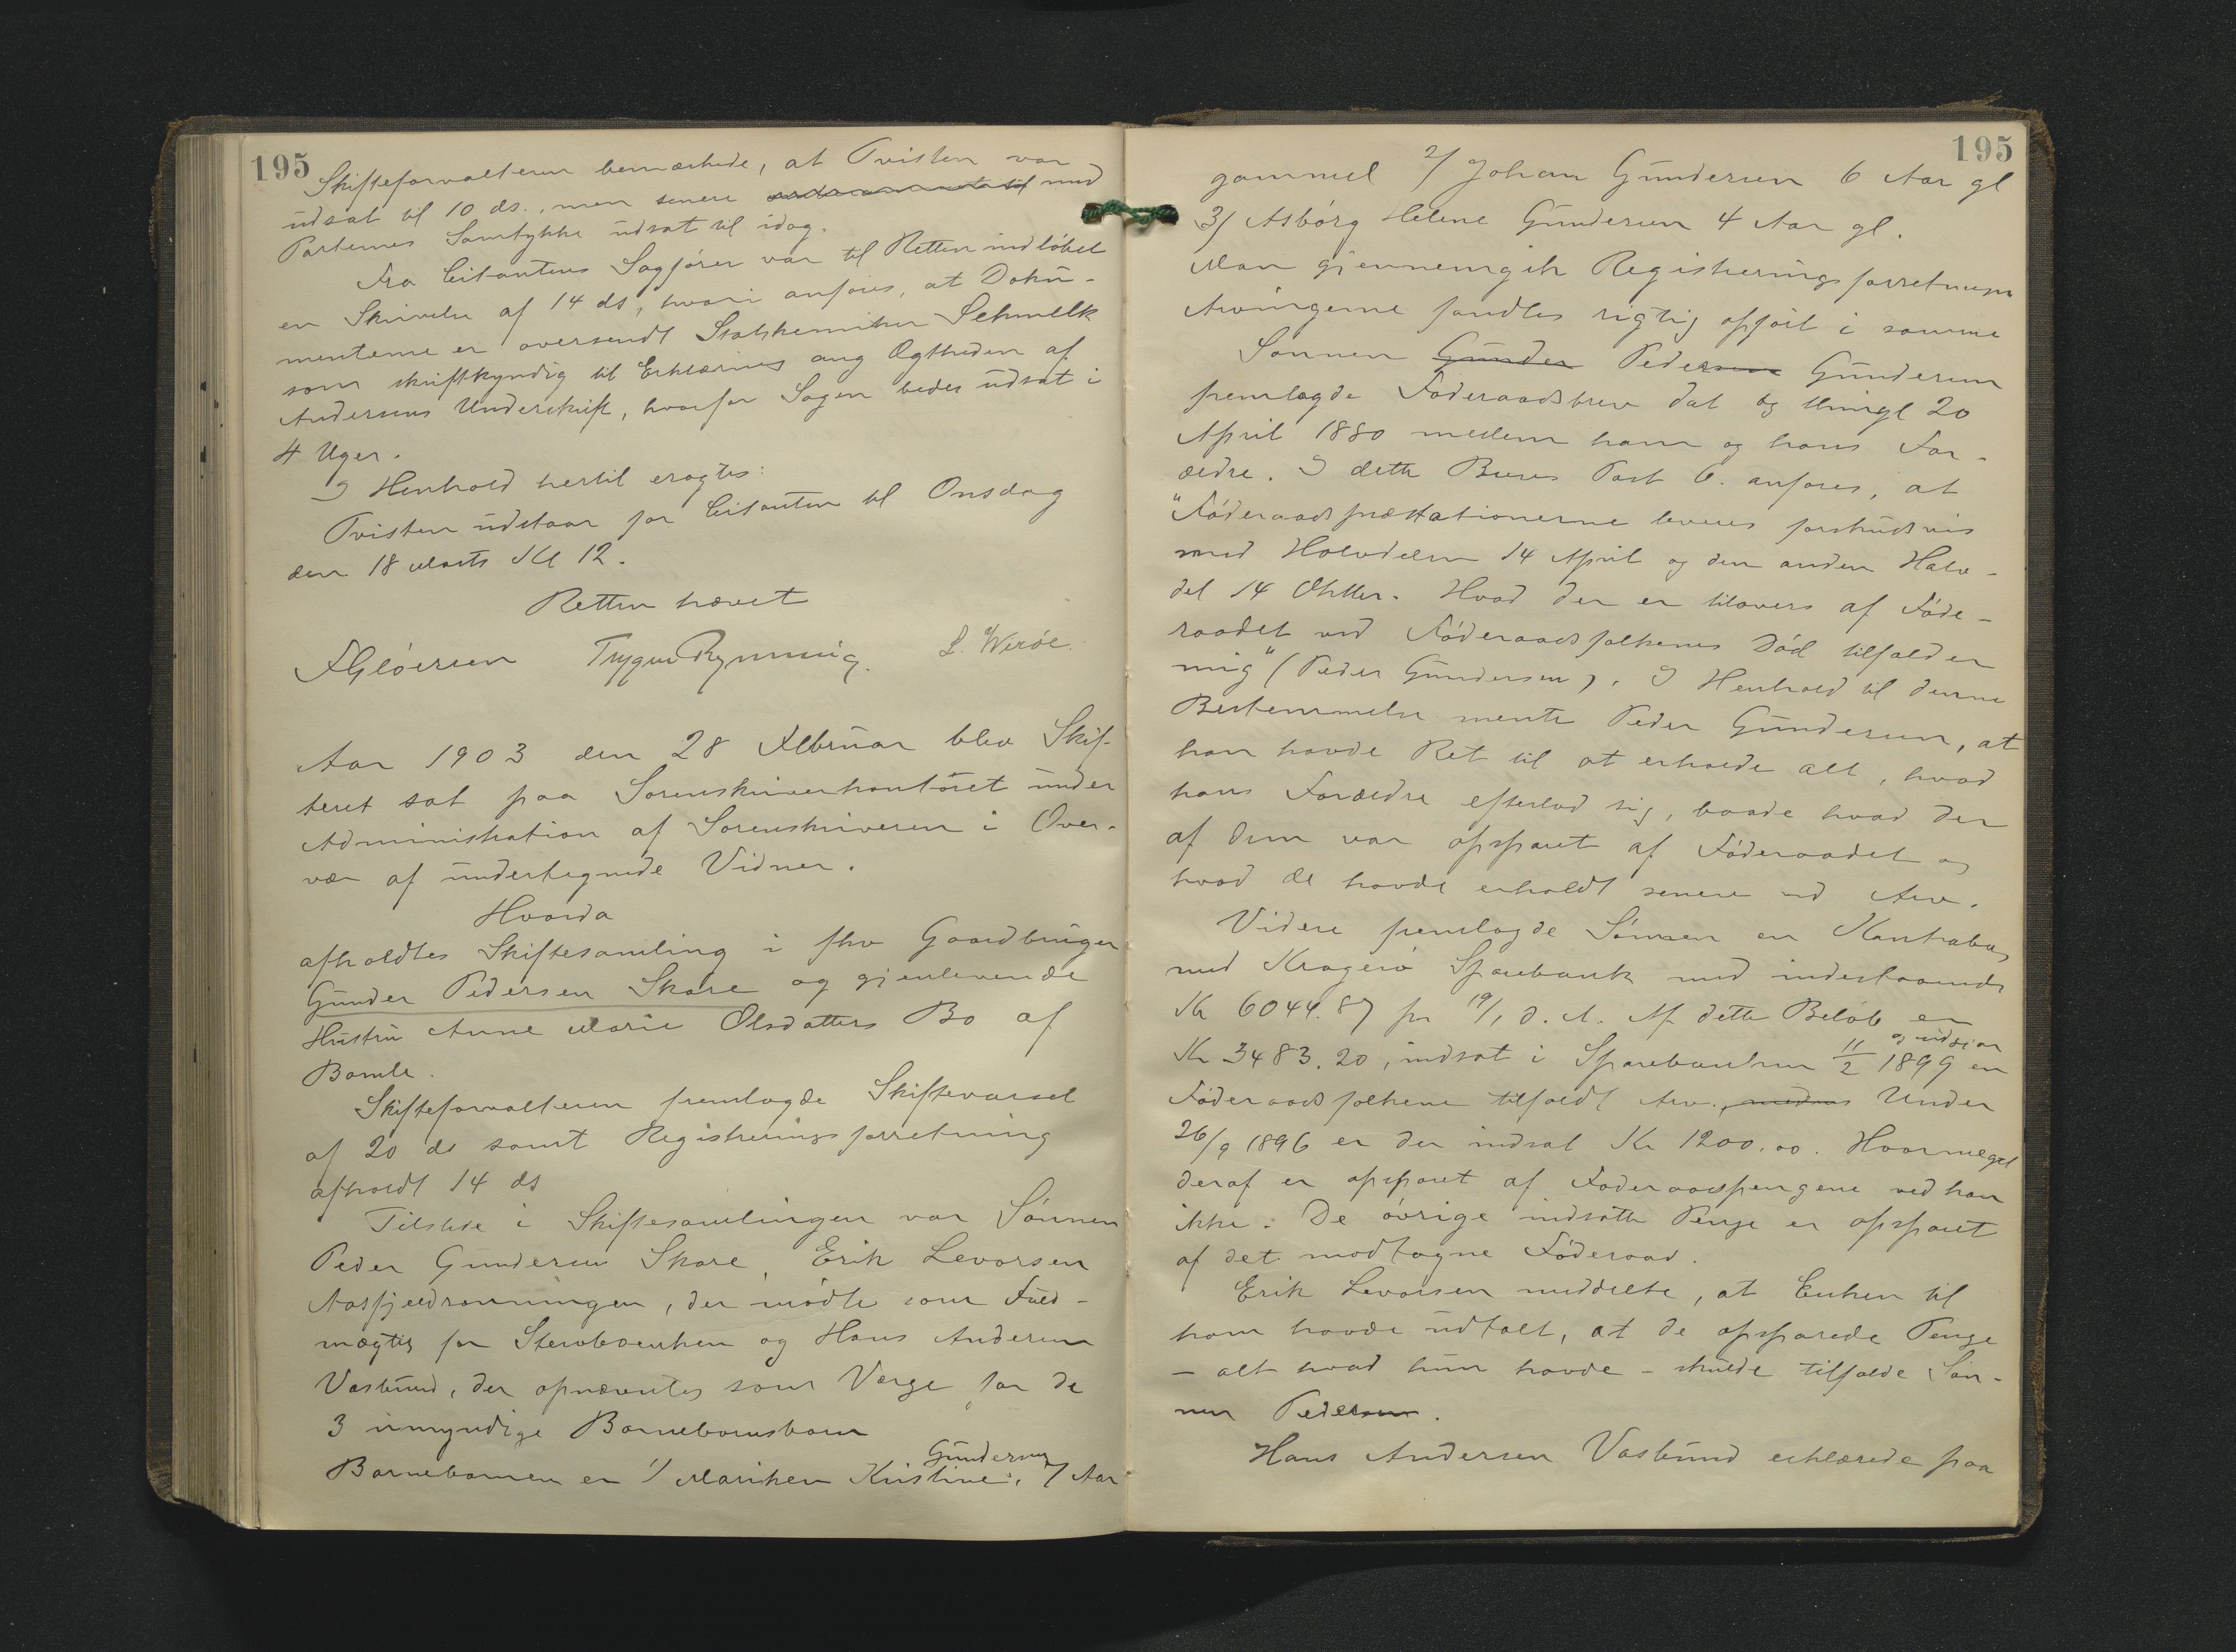 195
Skifteforvalteren bemærkede, at Tvisten var
udsat til 10 ds., men senere med
Parternes Samtykke udsat til idag.
Fra Citantens Sagfører var til Retten indløbet
en Skrivelse af 14 ds, hvori anføres, at Doku-
menterne er oversendt Statskemiker Schmelk
som skriftkyndig til Erklæring ang Ægtheden af
Andersens Underskrift, hvorfor Sagen bedes udsat i
4 Uger.
I Henhold hertil eragtes:
Tvisten udstaar for Citanten til Onsdag
den 18 Marts Kl 12.
Retten hævet
FGløersen Trygve Rynning. L. Wirøe.
Aar 1903 den 28 Februar blev Skif-
teret sat paa Sorenskriverkontoret under
Administration af Sorenskriveren i Over-
vær af undertegnede Vidner.
Hvorda
afholdtes Skiftesamling i fhv Gaardbruger
Gunder Pedersen Skare og gjenlevende
Hustru Anne Marie Olsdatters Bo af
Bamle.
Skifteforvalteren fremlagde Skiftevarsel
af 20 ds samt Registreringsforretning
afholdt 14 ds
Tilstede i Skiftesamlingen var Sønnen
Peder Gundersen Skare, Erik Levorsen
Aasfjeldrønningen, der mødte som Fuld-
mægtig for Sterboenken og Hans Andersen
Vastvund, der opnævntes som Værge for de
3 umyndige Barnebarnsbarn
Barnebarnen er 1/ Mariken Kristine Gundersen, 7 Aar
195
gammel 2/ Johan Gundersen 6 Aar gl
3/ Asbørg Helene Gundersen 4 Aar gl.
Man gjennemgik Registreringsforretningen
Arvingerne fandtes rigtig opført i samme
Sønnen Gunder Pedersen Gundersen
fremlagde Føderaadsbrev dat og thingl 20
April 1880 mellem ham og hans For-
ældre. I dette Brevs Post 6. anføres, at
"Føderaadspræstationerne leveres forskudsvis
med Halvdelen 14 April og den anden Halv-
del 14 Oktbr. Hvad der er tilovers af Føde-
raadet ved Føderaadsfolkenes Død tilfalder
mig" (Peder Gundersen). I Henhold til denne
Bestemmelse mente Peder Gundersen, at
han havde Ret til at erholde alt, hvad
hans Forældre efterlod sig, baade hvad der
af dem var opsparet af Føderaadet og
hvad de havde erholdt senere ved Arv.
Videre fremlagde Sønnen en Kontrabog
med Kragerø Sparebank med indestaaende
Kr 6044.87 pr 19/1 d. A. Af dette Beløb er
Kr 3483.20, indsat i Sparebanken 11/2 1899 en
Føderaadsfolkene tilfaldt Arv., medens Under
26/9 1896 er der indsat Kr 1200.00. Hvormeget
deraf er opsparet af Føderaadspengene ved han
ikke. De øvrige indsatte Penge er opsparet
af det modtagne Føderaad.
Erik Levorsen meddelte, at Enken til
ham havde udtalt, at de opsparede Penge
- alt hvad hun havde - skulde tilfalde Søn-
nen Pedersen.
Hans Andersen Vastvund erklærede paa